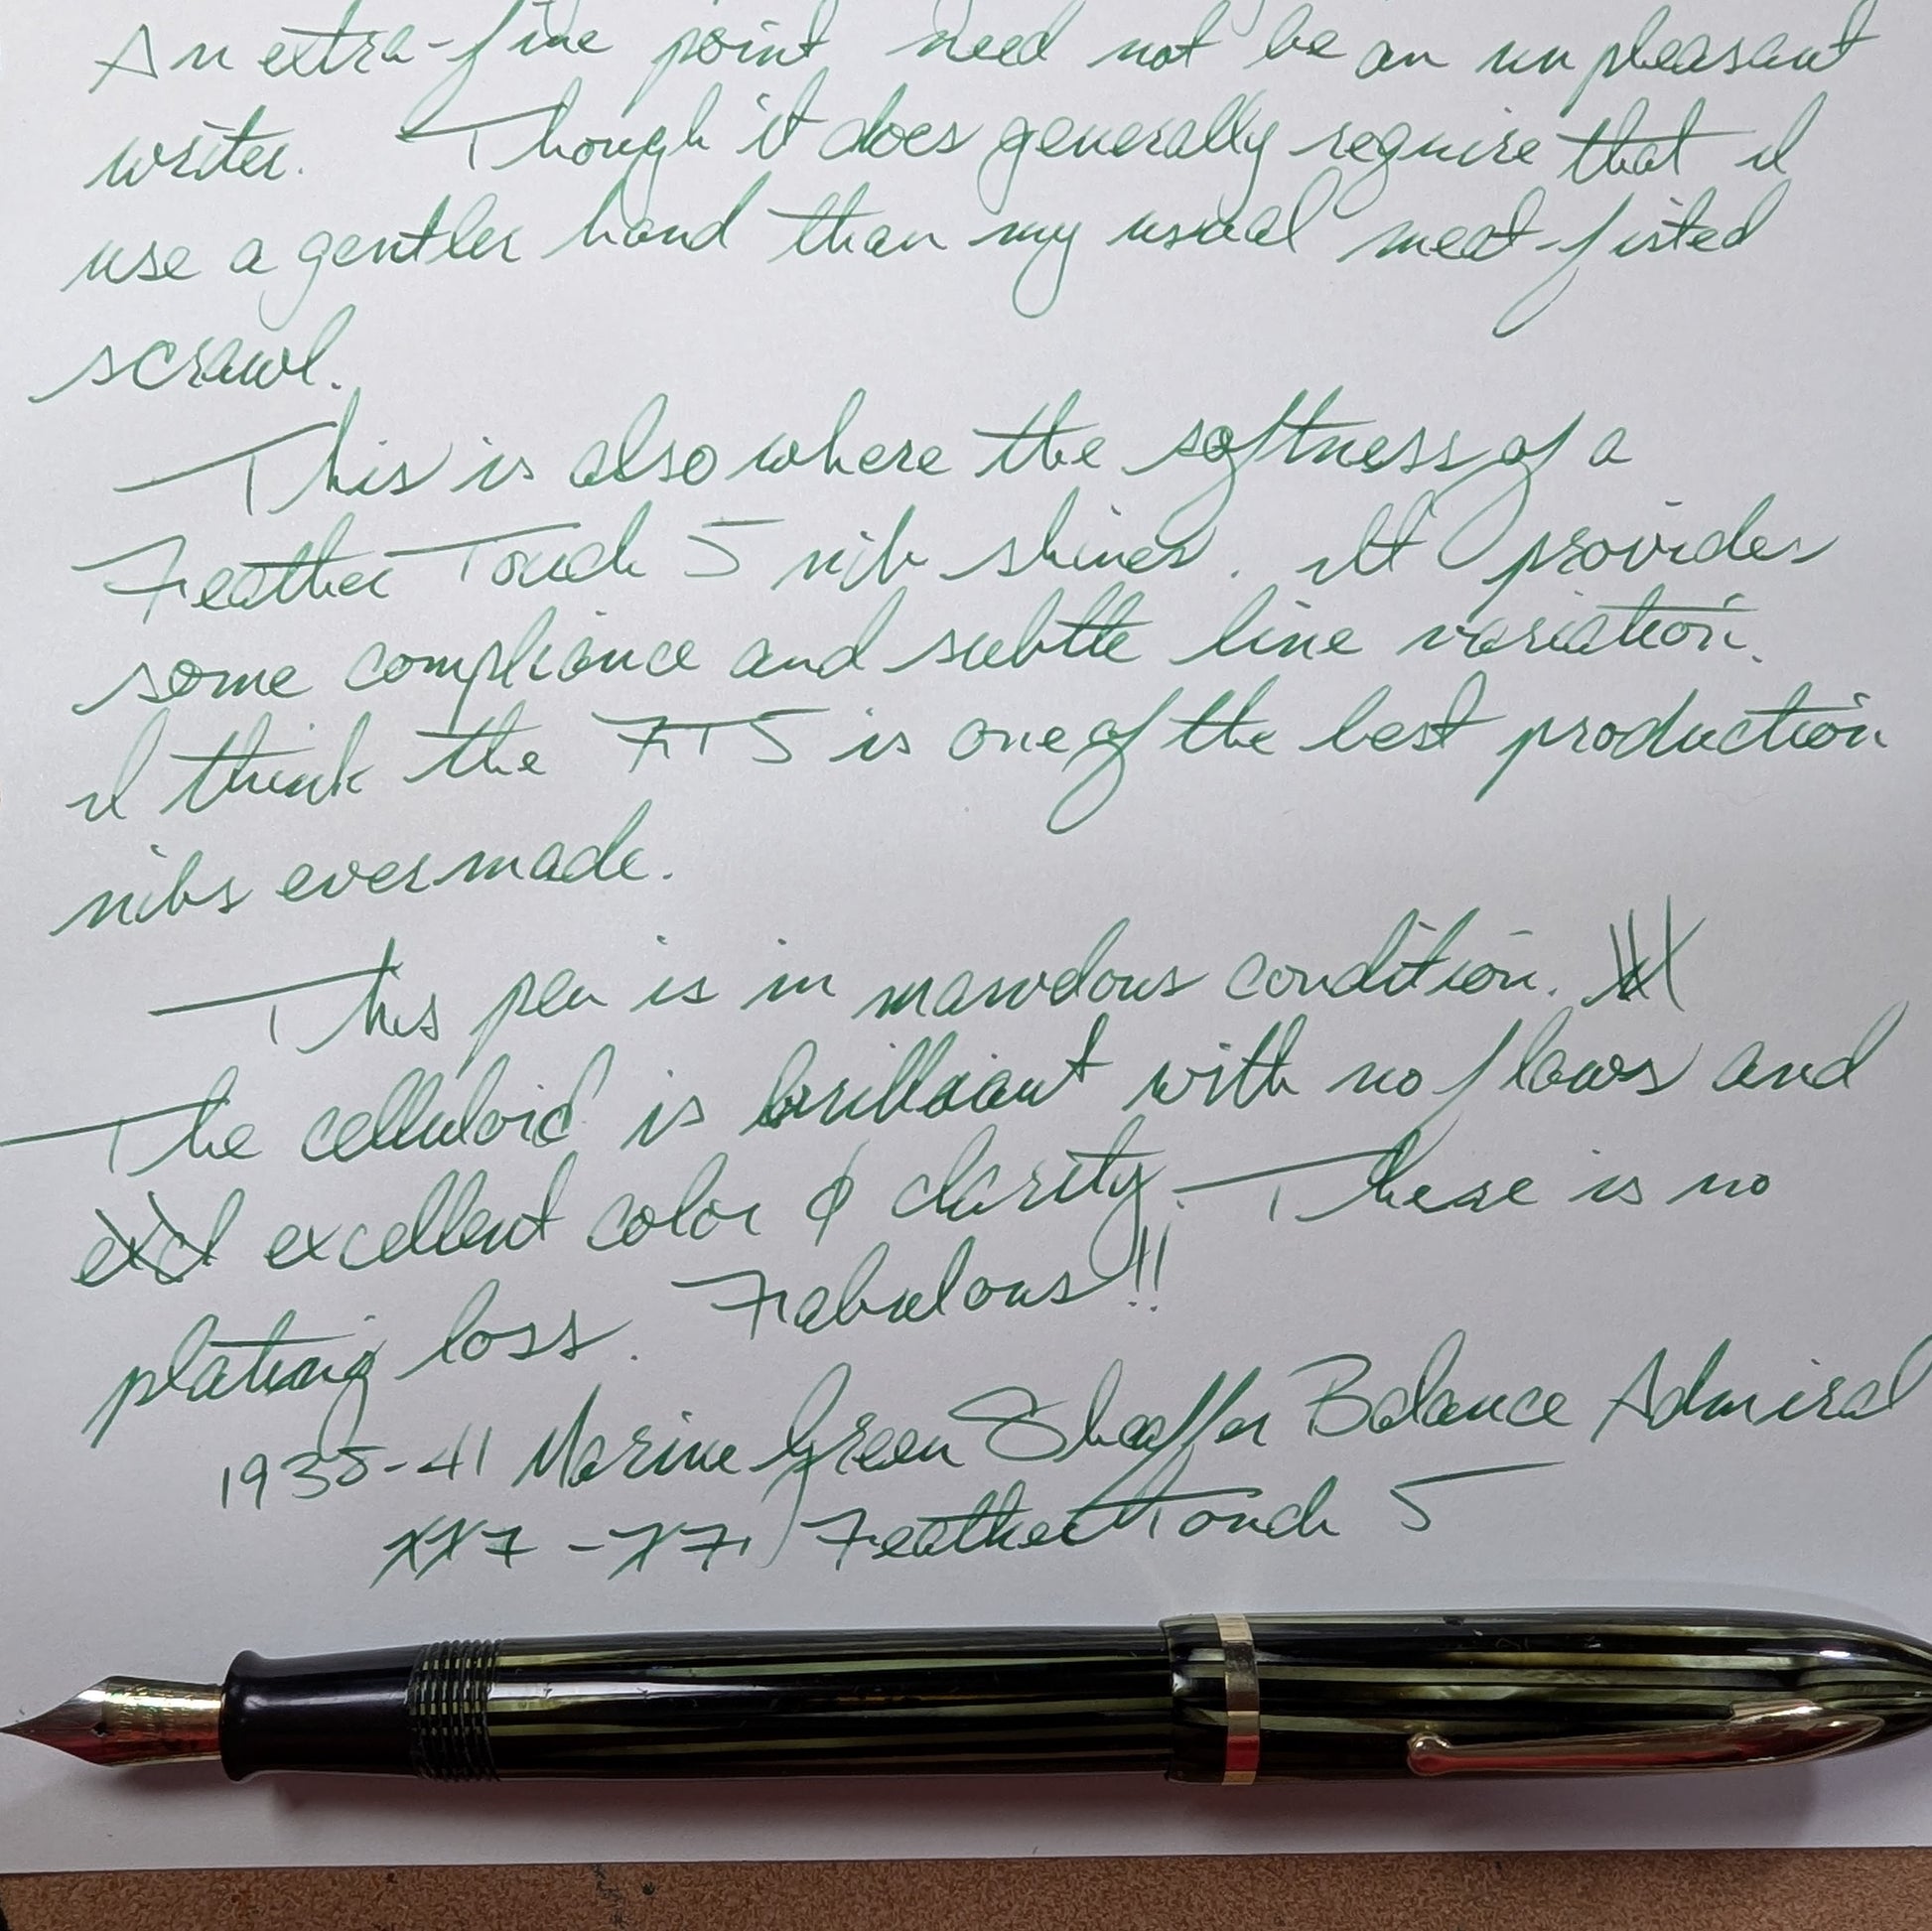 An extra-fine point need not be an unpleasant
writer. Though it does generally require that I
use a gentler hand than my usual meat-fisted
scrawl.
This is also where the softness of a
Feather Touch 5 nib shines. It provides
some compliance and subtle line variation.
I think the FT5 is one of the best production
nibs ever made.
This pen is in marvelous condition.
The celluloid is brilliant with no flaws and
excellent color & clarity. There is no
plating loss. Fabulous!!
1938-41 Marine Green Sheaffer Balance Admiral
XXF - XF, Feather Touch 5